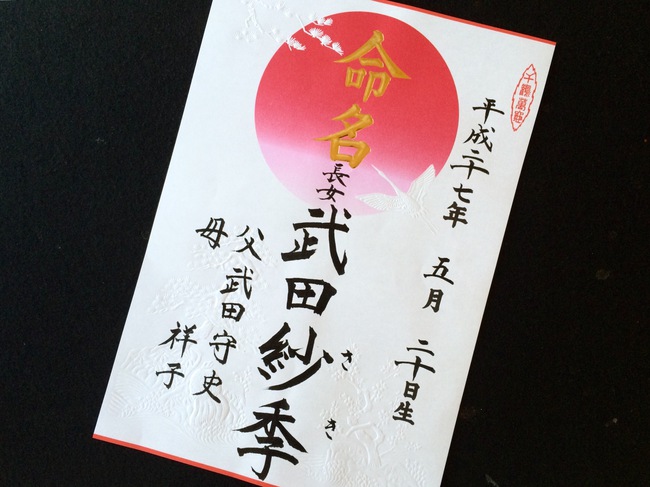 千鶴萬亀
平成二十七年 五月 二十日生
命名
長女
武田紗季
さき
父 武田守史
母 祥子